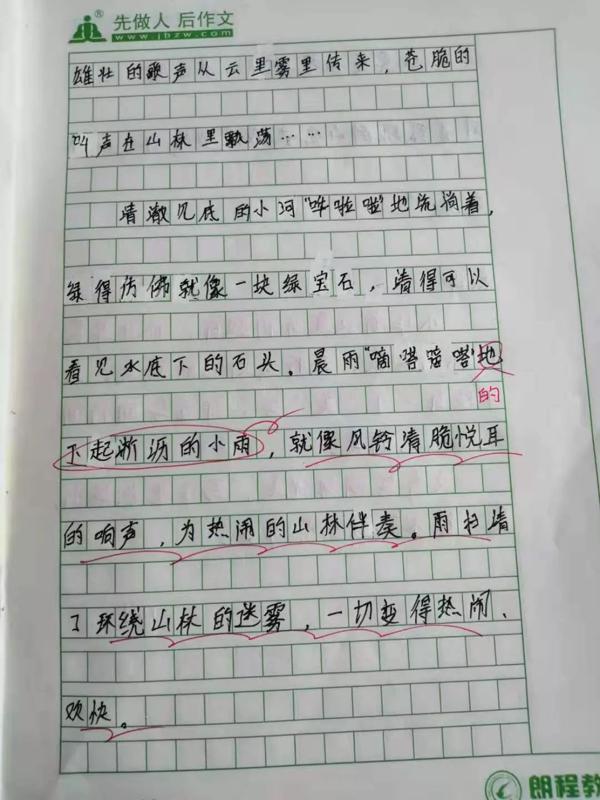 先做人 后作文
www.jbzw.com
雄壮的歌声从云里雾里传来，苍脆的
叫声在山林里飘荡……
清澈见底的小河“哗啦啦”地流淌着，
绿得仿佛就像一块绿宝石，清得可以
看见水底下的石头。晨雨“嘀嗒嘀嗒”地
的
下起淅沥的小雨，就像风铃清脆悦耳
的响声，为热闹的山林伴奏。雨扫清
了环绕山林的迷雾，一切变得热闹、
欢快。
朗程教